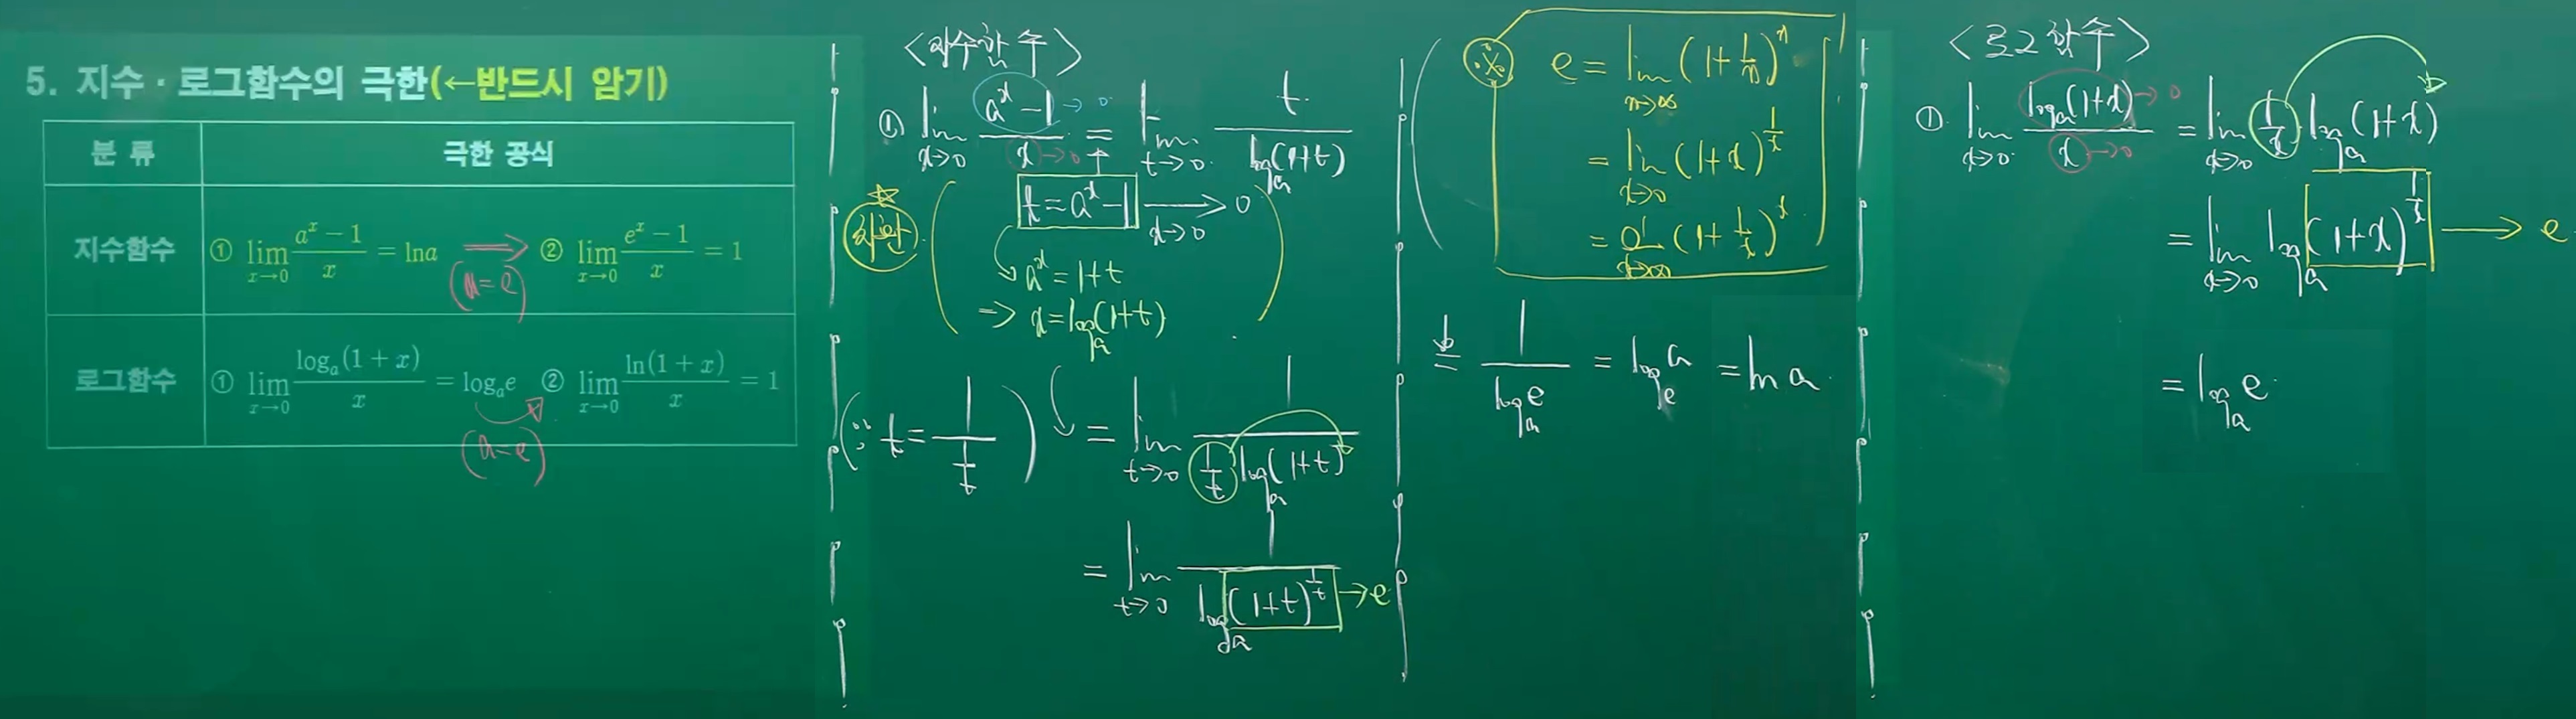 5. 지수·로그함수의 극한(←반드시 암기)
분 류 극한 공식
지수함수 ① lim_{x→0} (a^x − 1)/x = ln a ⟹ (a=e) ② lim_{x→0} (e^x − 1)/x = 1
로그함수 ① lim_{x→0} log_a(1 + x)/x = log_a e (a=e) ② lim_{x→0} ln(1 + x)/x = 1
<지수함수>
① lim_{x→0} (a^x − 1 → 0)/(x → 0) = lim_{t→0} t/log_a(1+t)
☆
치환
t = a^x − 1 →_{x→0} 0
a^x = 1+t
⇒ x = log_a(1+t)
(∵ t = 1/(1/t)) = lim_{t→0} 1/((1/t) log_a(1+t))
= lim_{t→0} 1/log_a(1+t)^{1/t} → e
※ e = lim_{n→∞} (1+1/n)^n
= lim_{x→0} (1+x)^{1/x}
= lim_{x→∞} (1+1/x)^x
= 1/log_a e = log_e a = ln a
<로그함수>
① lim_{x→0} (log_a(1+x) → 0)/(x → 0) = lim_{x→0} (1/x) log_a(1+x)
= lim_{x→0} log_a(1+x)^{1/x} → e
= log_a e